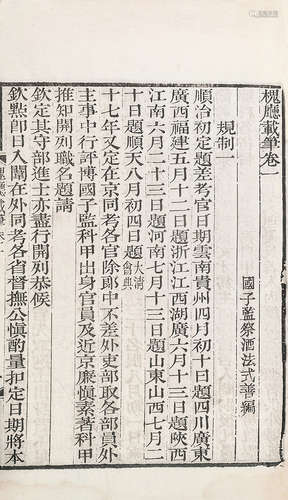 槐廳載筆卷一
國子監祭酒法式善編
規制一
順治初定題差考官日期雲南貴州四月初十日題四川廣東
廣西福建五月十二日題浙江江西湖廣六月十三日題陝西
江南六月二十三日題河南七月十三日題山東山西七月二
十日題順天八月初四日題大清會典
十七年又定在京同考各官除郎中不差外吏部取各部員外
主事中行評博國子監科甲出身官員及近京廉慎素著科甲
推知開列職名題請
欽定其守部進士亦盡行開列恭候
欽點即日入闈在外同考各省督撫公慎酌量扣定日期將本
槐廳載筆